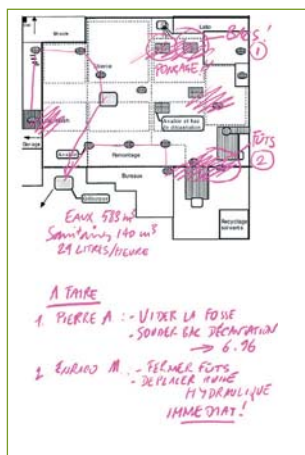 Labo
BACS!
1
PONÇAGE!!
Usinage
Avaloir et bac
de décantation
FÛTS
2
Garage
Avaloir
Remontage
Bureaux
Collecteur
Recyclage
solvants
EAUX 583 m³
Sanitaires 140 m³
21 LITRES/HEURE
A FAIRE
1. PIERRE A : - VIDER LA FOSSE
- SONDER BAC DÉCANTATION
→ 6.96
2. ENRICO M : - FERMER FÛTS
- DEPLACER HUILE
HYDRAULIQUE
IMMEDIAT!